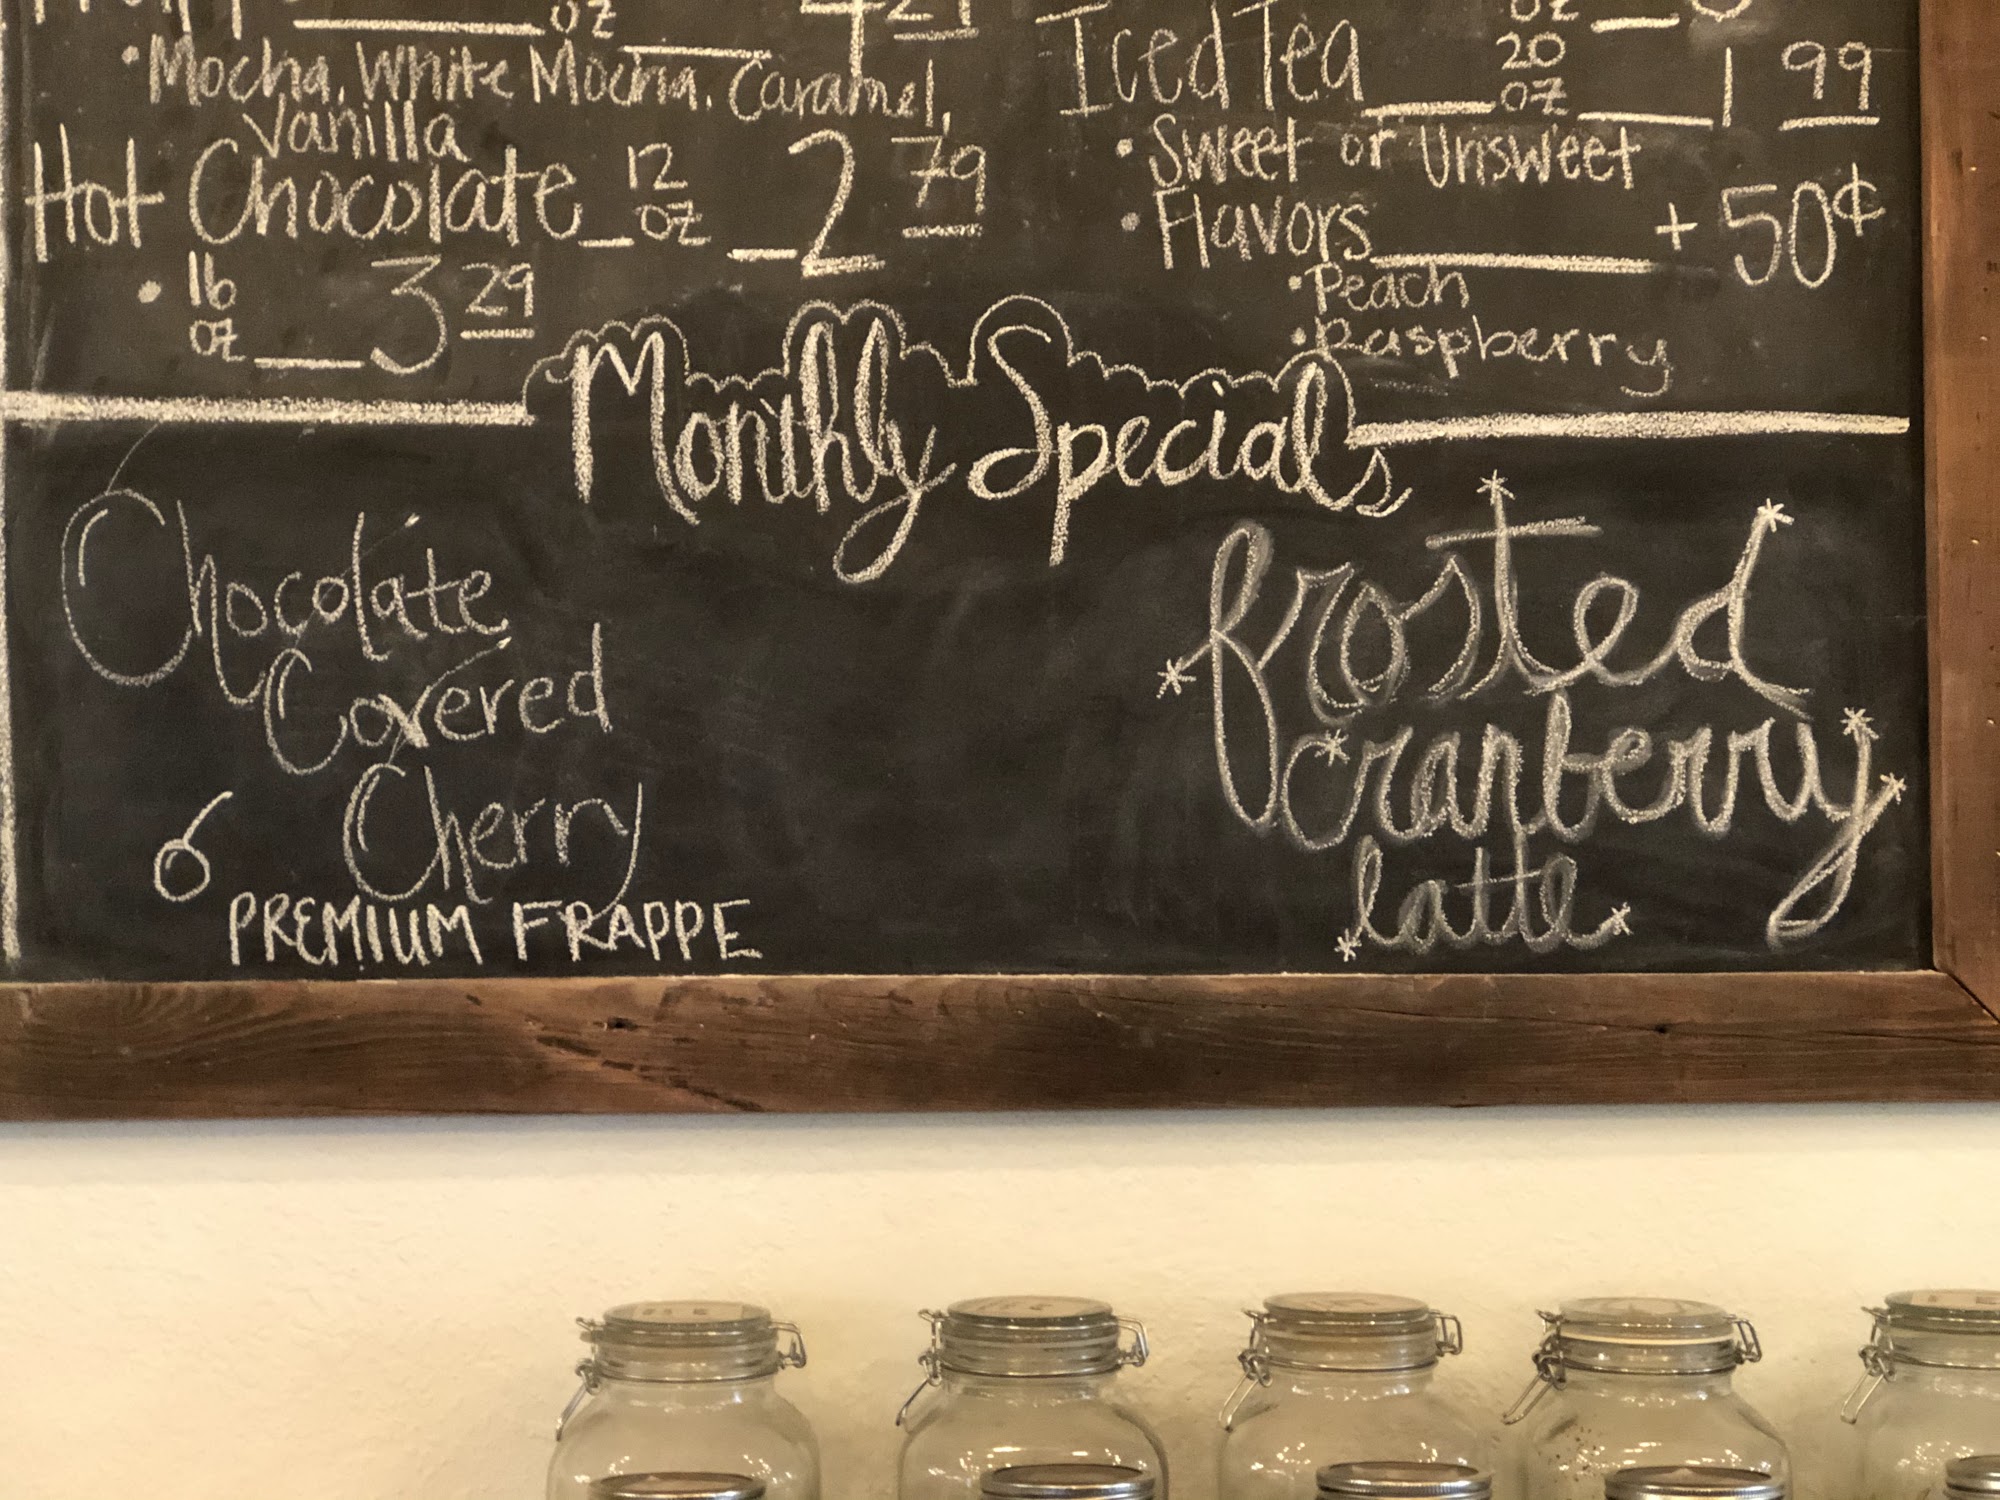 oz 4 29
• Mocha, White Mocha, Caramel,
Vanilla
Hot Chocolate 12 oz 2 79
• 16 oz 3 29
oz
Iced Tea 20 oz 1 99
• Sweet or Unsweet
• Flavors + 50¢
• Peach
• Raspberry
Monthly Specials
Chocolate
Covered
Cherry
PREMIUM FRAPPE
frosted
cranberry
latte